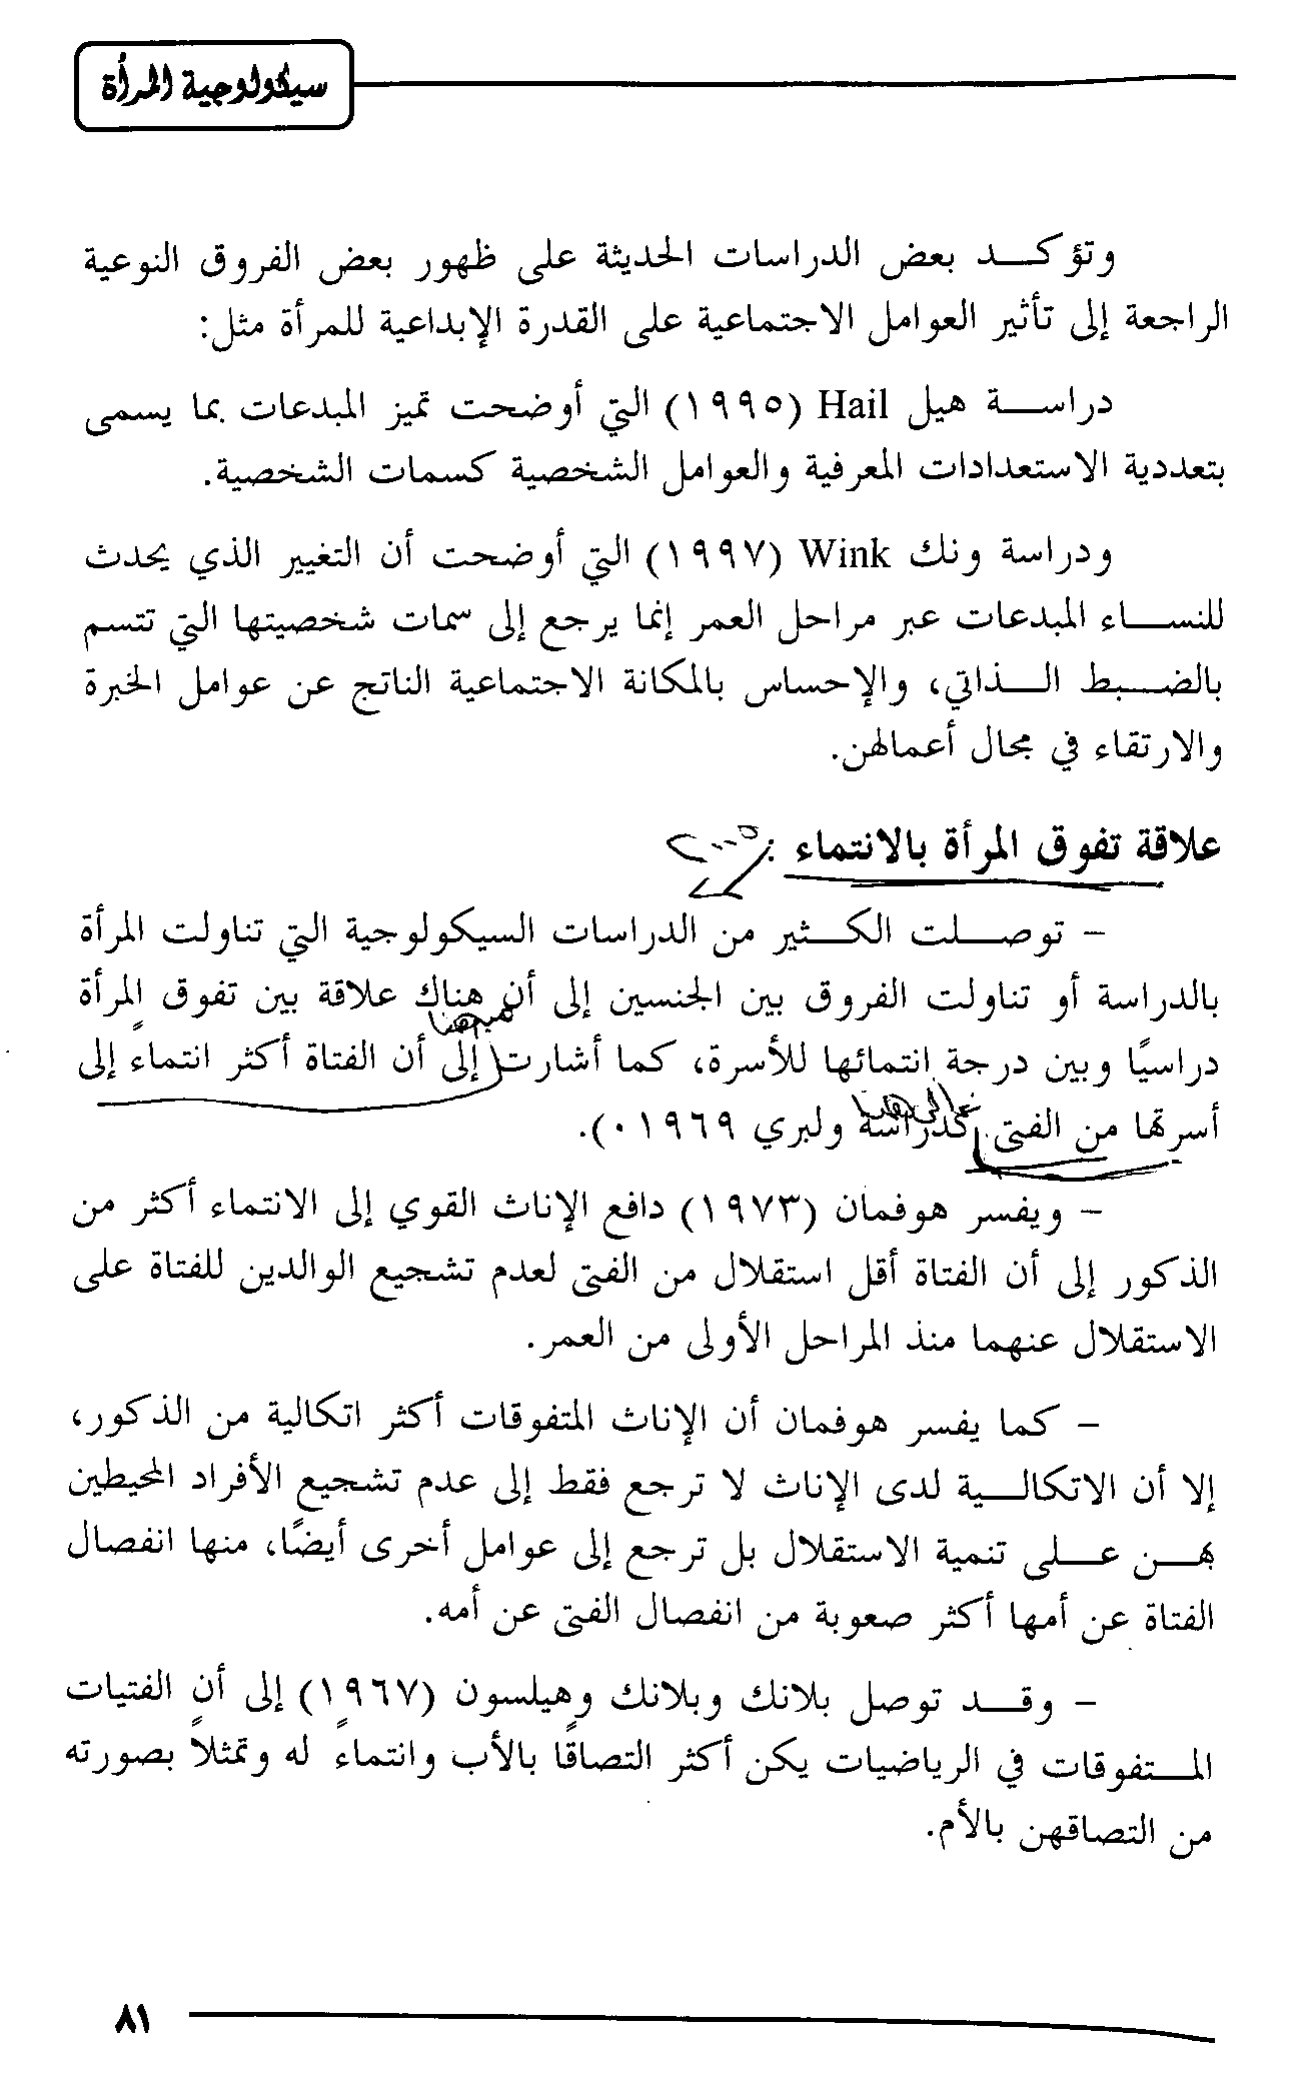 سيكولوجية المرأة
وتؤكد بعض الدراسات الحديثة على ظهور بعض الفروق النوعية
الراجعة إلى تأثير العوامل الاجتماعية على القدرة الإبداعية للمرأة مثل:
دراسة هيل Hail (١٩٩٥) التي أوضحت تميز المبدعات بما يسمى
بتعددية الاستعدادات المعرفية والعوامل الشخصية كسمات الشخصية.
ودراسة ونك Wink (١٩٩٧) التي أوضحت أن التغيير الذي يحدث
للنساء المبدعات عبر مراحل العمر إنما يرجع إلى سمات شخصيتها التي تتسم
بالضبط الذاتي، والإحساس بالمكانة الاجتماعية الناتج عن عوامل الخبرة
والارتقاء في مجال أعمالهن.
علاقة تفوق المرأة بالانتماء :
– توصلت الكثير من الدراسات السيكولوجية التي تناولت المرأة
بالدراسة أو تناولت الفروق بين الجنسين إلى أن هناك علاقة بين تفوق المرأة
دراسيًا وبين درجة انتمائها للأسرة، كما أشارت إلى أن الفتاة أكثر انتماءً إلى
أسرتها من الفتى كدراسة ولبري ١٩٦٩٠).
– ويفسر هوفمان (١٩٧٣) دافع الإناث القوي إلى الانتماء أكثر من
الذكور إلى أن الفتاة أقل استقلال من الفتى لعدم تشجيع الوالدين للفتاة على
الاستقلال عنهما منذ المراحل الأولى من العمر.
– كما يفسر هوفمان أن الإناث المتفوقات أكثر اتكالية من الذكور،
إلا أن الاتكالية لدى الإناث لا ترجع فقط إلى عدم تشجيع الأفراد المحيطين
بهن على تنمية الاستقلال بل ترجع إلى عوامل أخرى أيضًا، منها انفصال
الفتاة عن أمها أكثر صعوبة من انفصال الفتى عن أمه.
– وقد توصل بلانك وبلانك وهيلسون (١٩٦٧) إلى أن الفتيات
المتفوقات في الرياضيات يكن أكثر التصاقًا بالأب وانتماءً له وتمثلاً بصورته
من التصاقهن بالأم.
٨١